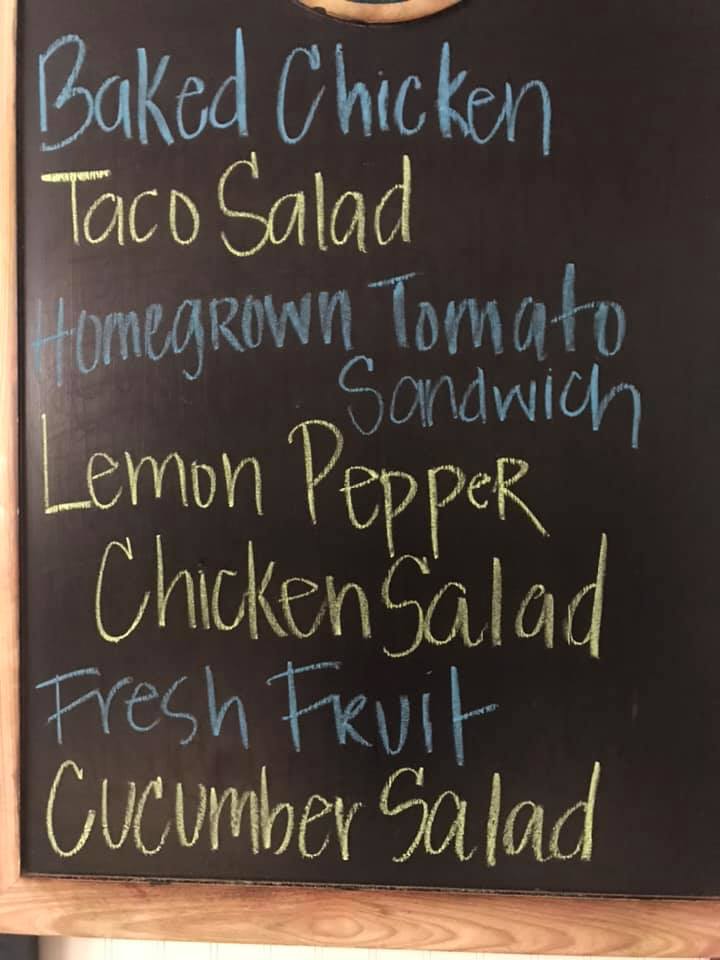 Baked Chicken
Taco Salad
Homegrown Tomato
Sandwich
Lemon Pepper
Chicken Salad
Fresh Fruit
Cucumber Salad